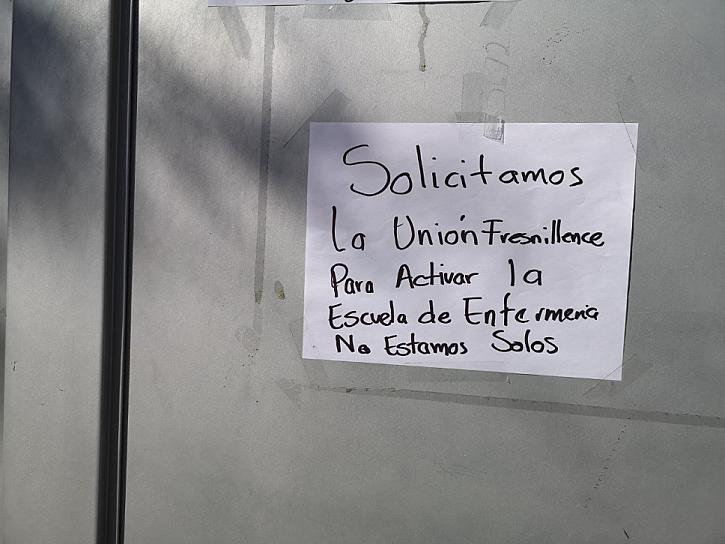 Solicitamos
La Unión Fresnillence
Para Activar la
Escuela de Enfermeria
No Estamos Solos